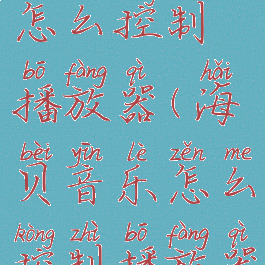 怎么控制
bō fàng qì hǎi
播放器(海
bèi yīn lè zěn me
贝音乐怎么
kòng zhì bō fàng qì
控制播放器